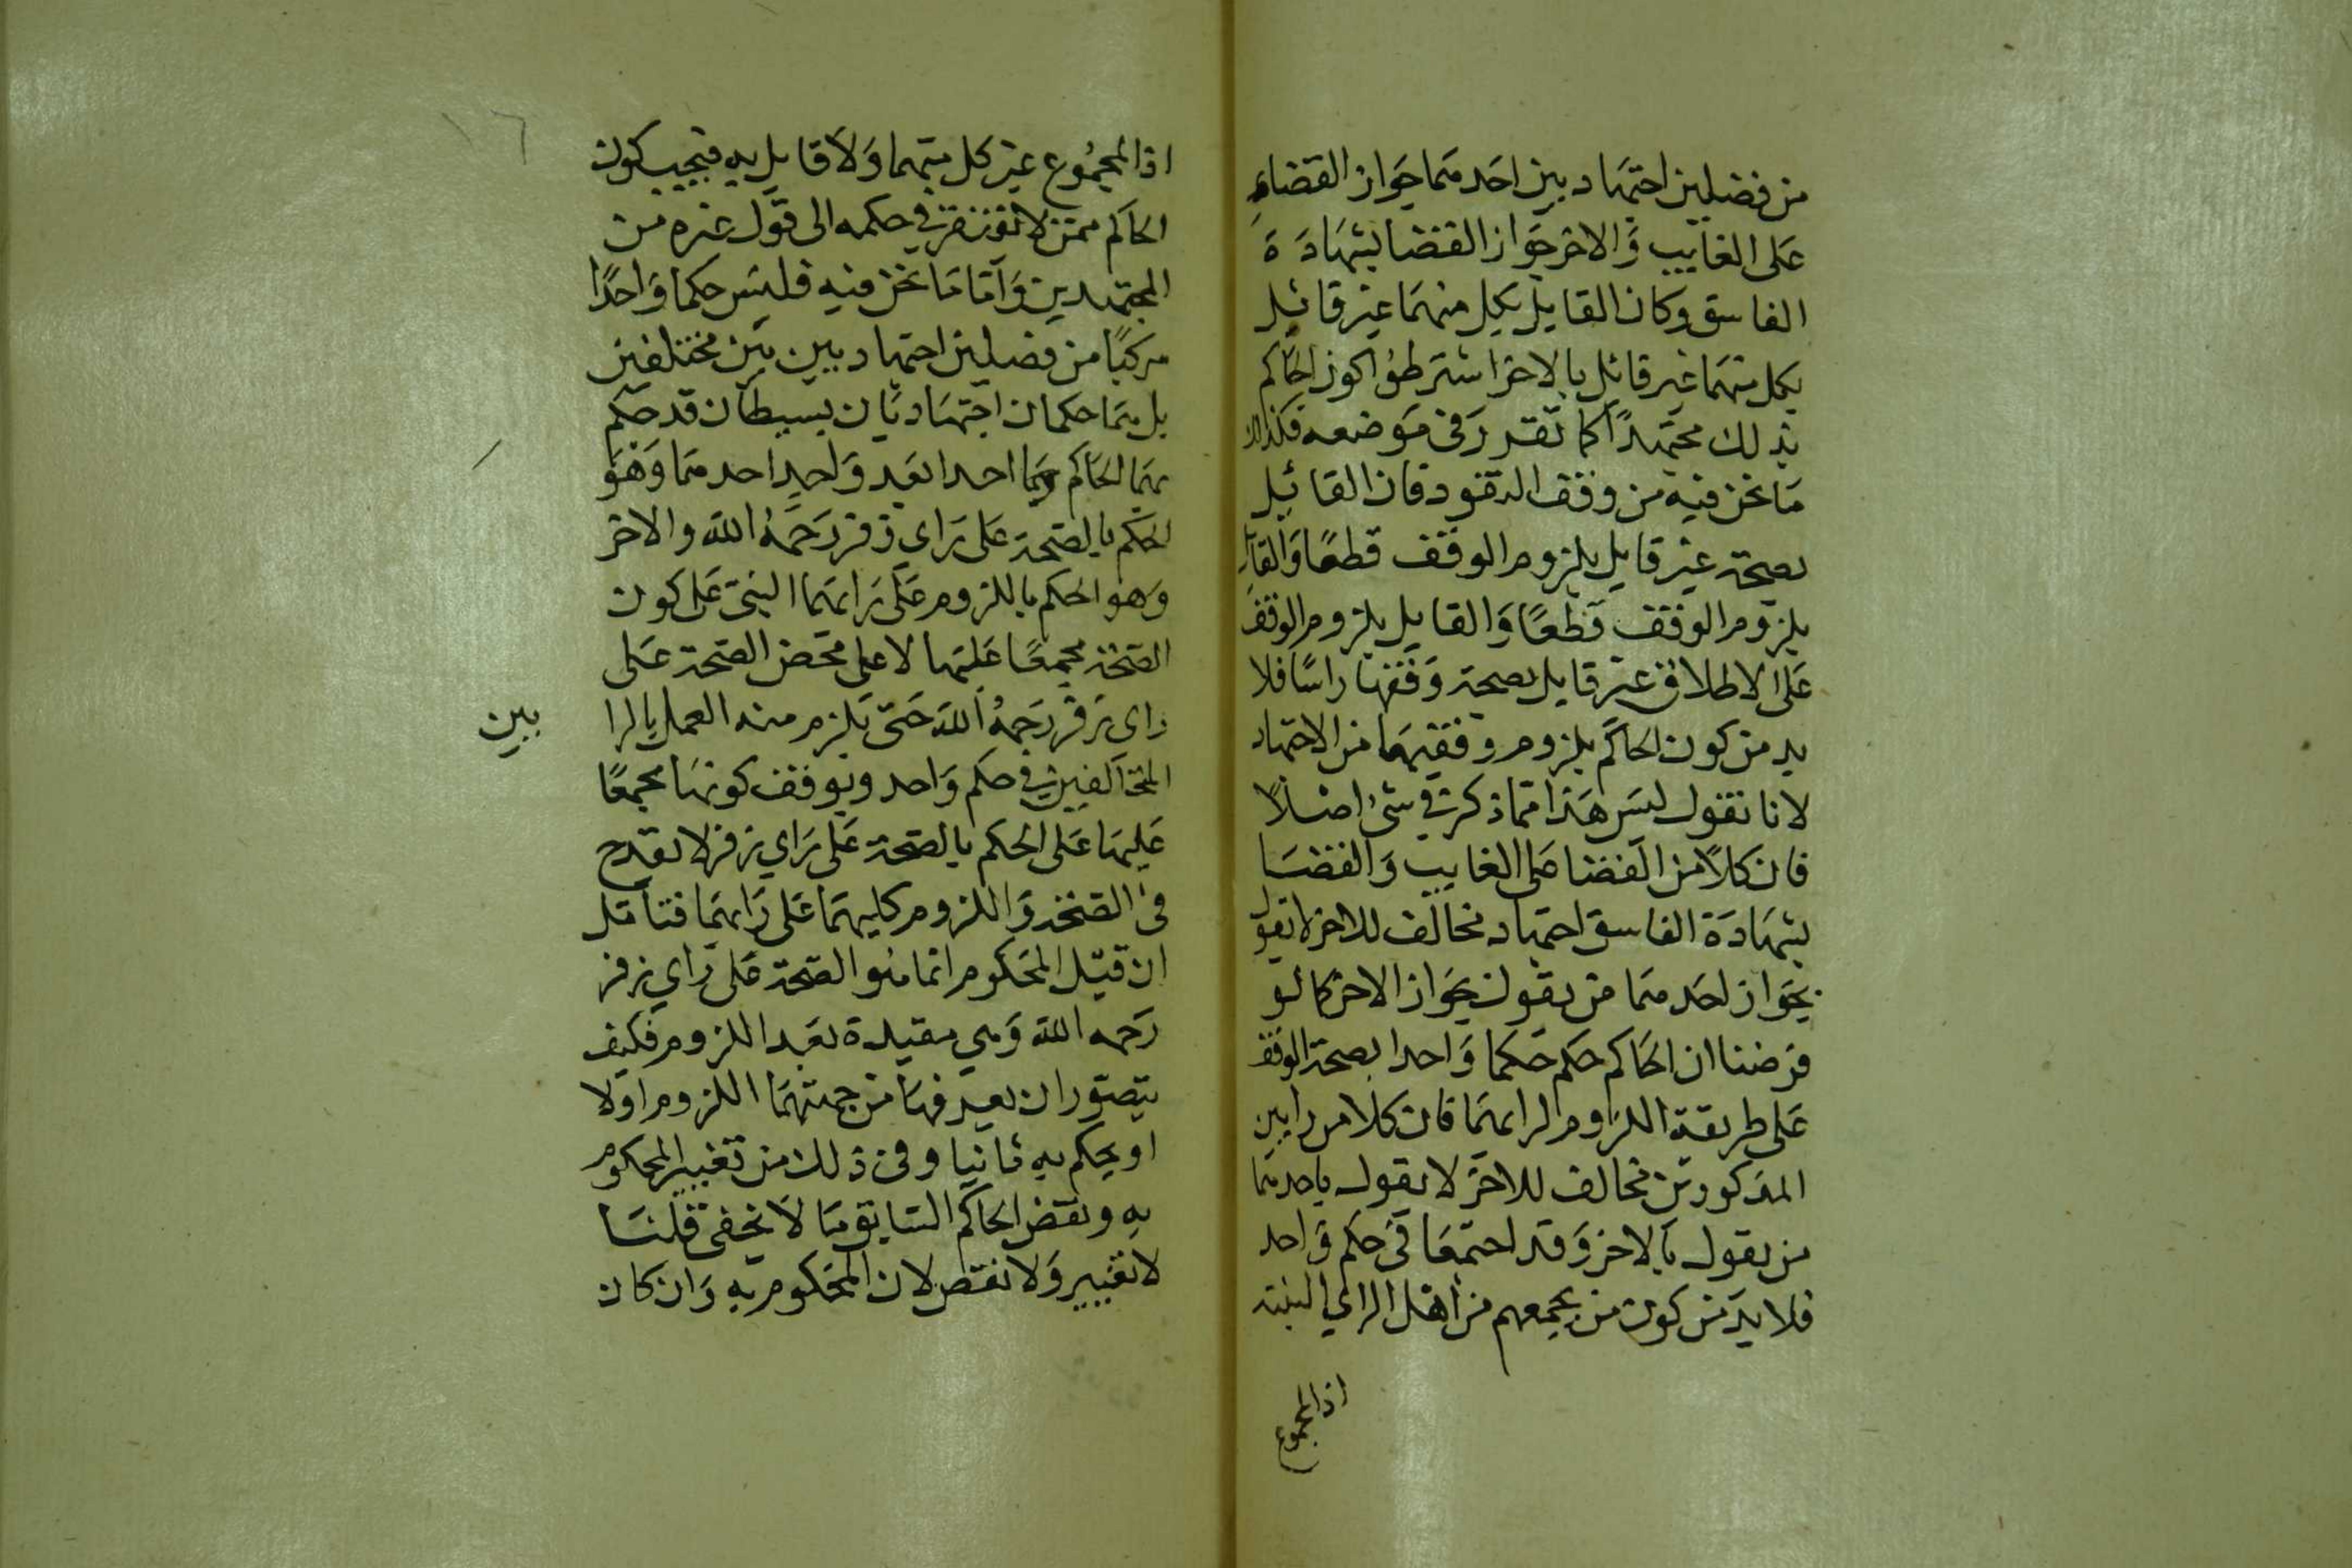 من فصلين اجتهاديين احدهما جواز القضاء
على الغايب والاخر جواز القضا بشهادة
الفاسق وكان القايل بكل منهما غير قائل
بكل منهما غير قائل بالاخر اشترطوا كون الحاكم
بذلك مجتهدًا كما تقرر في موضعه فكذلك
ما نحن فيه من وقف النقود فان القائل
بصحته غير قايل بلزوم الوقف قطعًا والقايل
بلزوم الوقف قطعًا والقايل بلزوم الوقف
على الاطلاق غير قايل بصحة وقفها راسًا فلا
بد من كون الحاكم بلزوم وقفيهما من الاجتهاد
لانا نقول ليس هذا مما ذكر في شئ اصلًا
فان كلًا من القضا على الغايب والقضا
بشهادة الفاسق اجتهاد مخالف للاخر لا يقول
بجواز احدهما من يقول بجواز الاخر كما لو
فرضنا ان الحاكم حكم حكما واحدا بصحة الوقف
على طريقة اللزوم لرايهما فان كلا من رايين
المذكورين مخالف للاخر لا يقول باحدهما
من يقول بالاخر وقد اجتمعا في حكم واحد
فلا بد من كون من يجمعهم من اهل الراي البتة
اذ المجموع
اذ المجموع غير كل منهما ولا قايل به فيجب كون
الحاكم ممن لا يفتقر في حكمه الى قول غيره من
المجتهدين واما ما نحن فيه فليس حكما واحدًا
مركبًا من فصلين اجتهاديين بين مختلفين
بل هما حكمان اجتهاديان بسيطان قد حكم
بهما الحاكم وهما احدا بعد واحد احدهما وهو
الحكم بالصحة على راي زفر رحمه الله والاخر
وهو الحكم باللزوم على رايهما البني على كون
الصحة مجمعًا عليها لا على محض الصحة على
راي زفر رحمه الله حتى يلزم منه العمل بالرا
بين
المتخالفين في حكم واحد وتوقف كونها مجمعًا
عليها على الحكم بالصحة على راي زفر لا يقدح
في الصحة واللزوم كليهما على رايهما فتأمل
ان قيل المحكوم انما هو الصحة على راي زفر
رحمه الله وهي مقيدة بعد اللزوم فكيف
يتصور ان من جهتهما اللزوم اولا
او يحكم به ثانيا وفي ذلك من تغيير المحكوم
به ونقض الحاكم السابق ما لا يخفى قلنا
لا تغيير ولا نقض لان المحكوم به وان كان